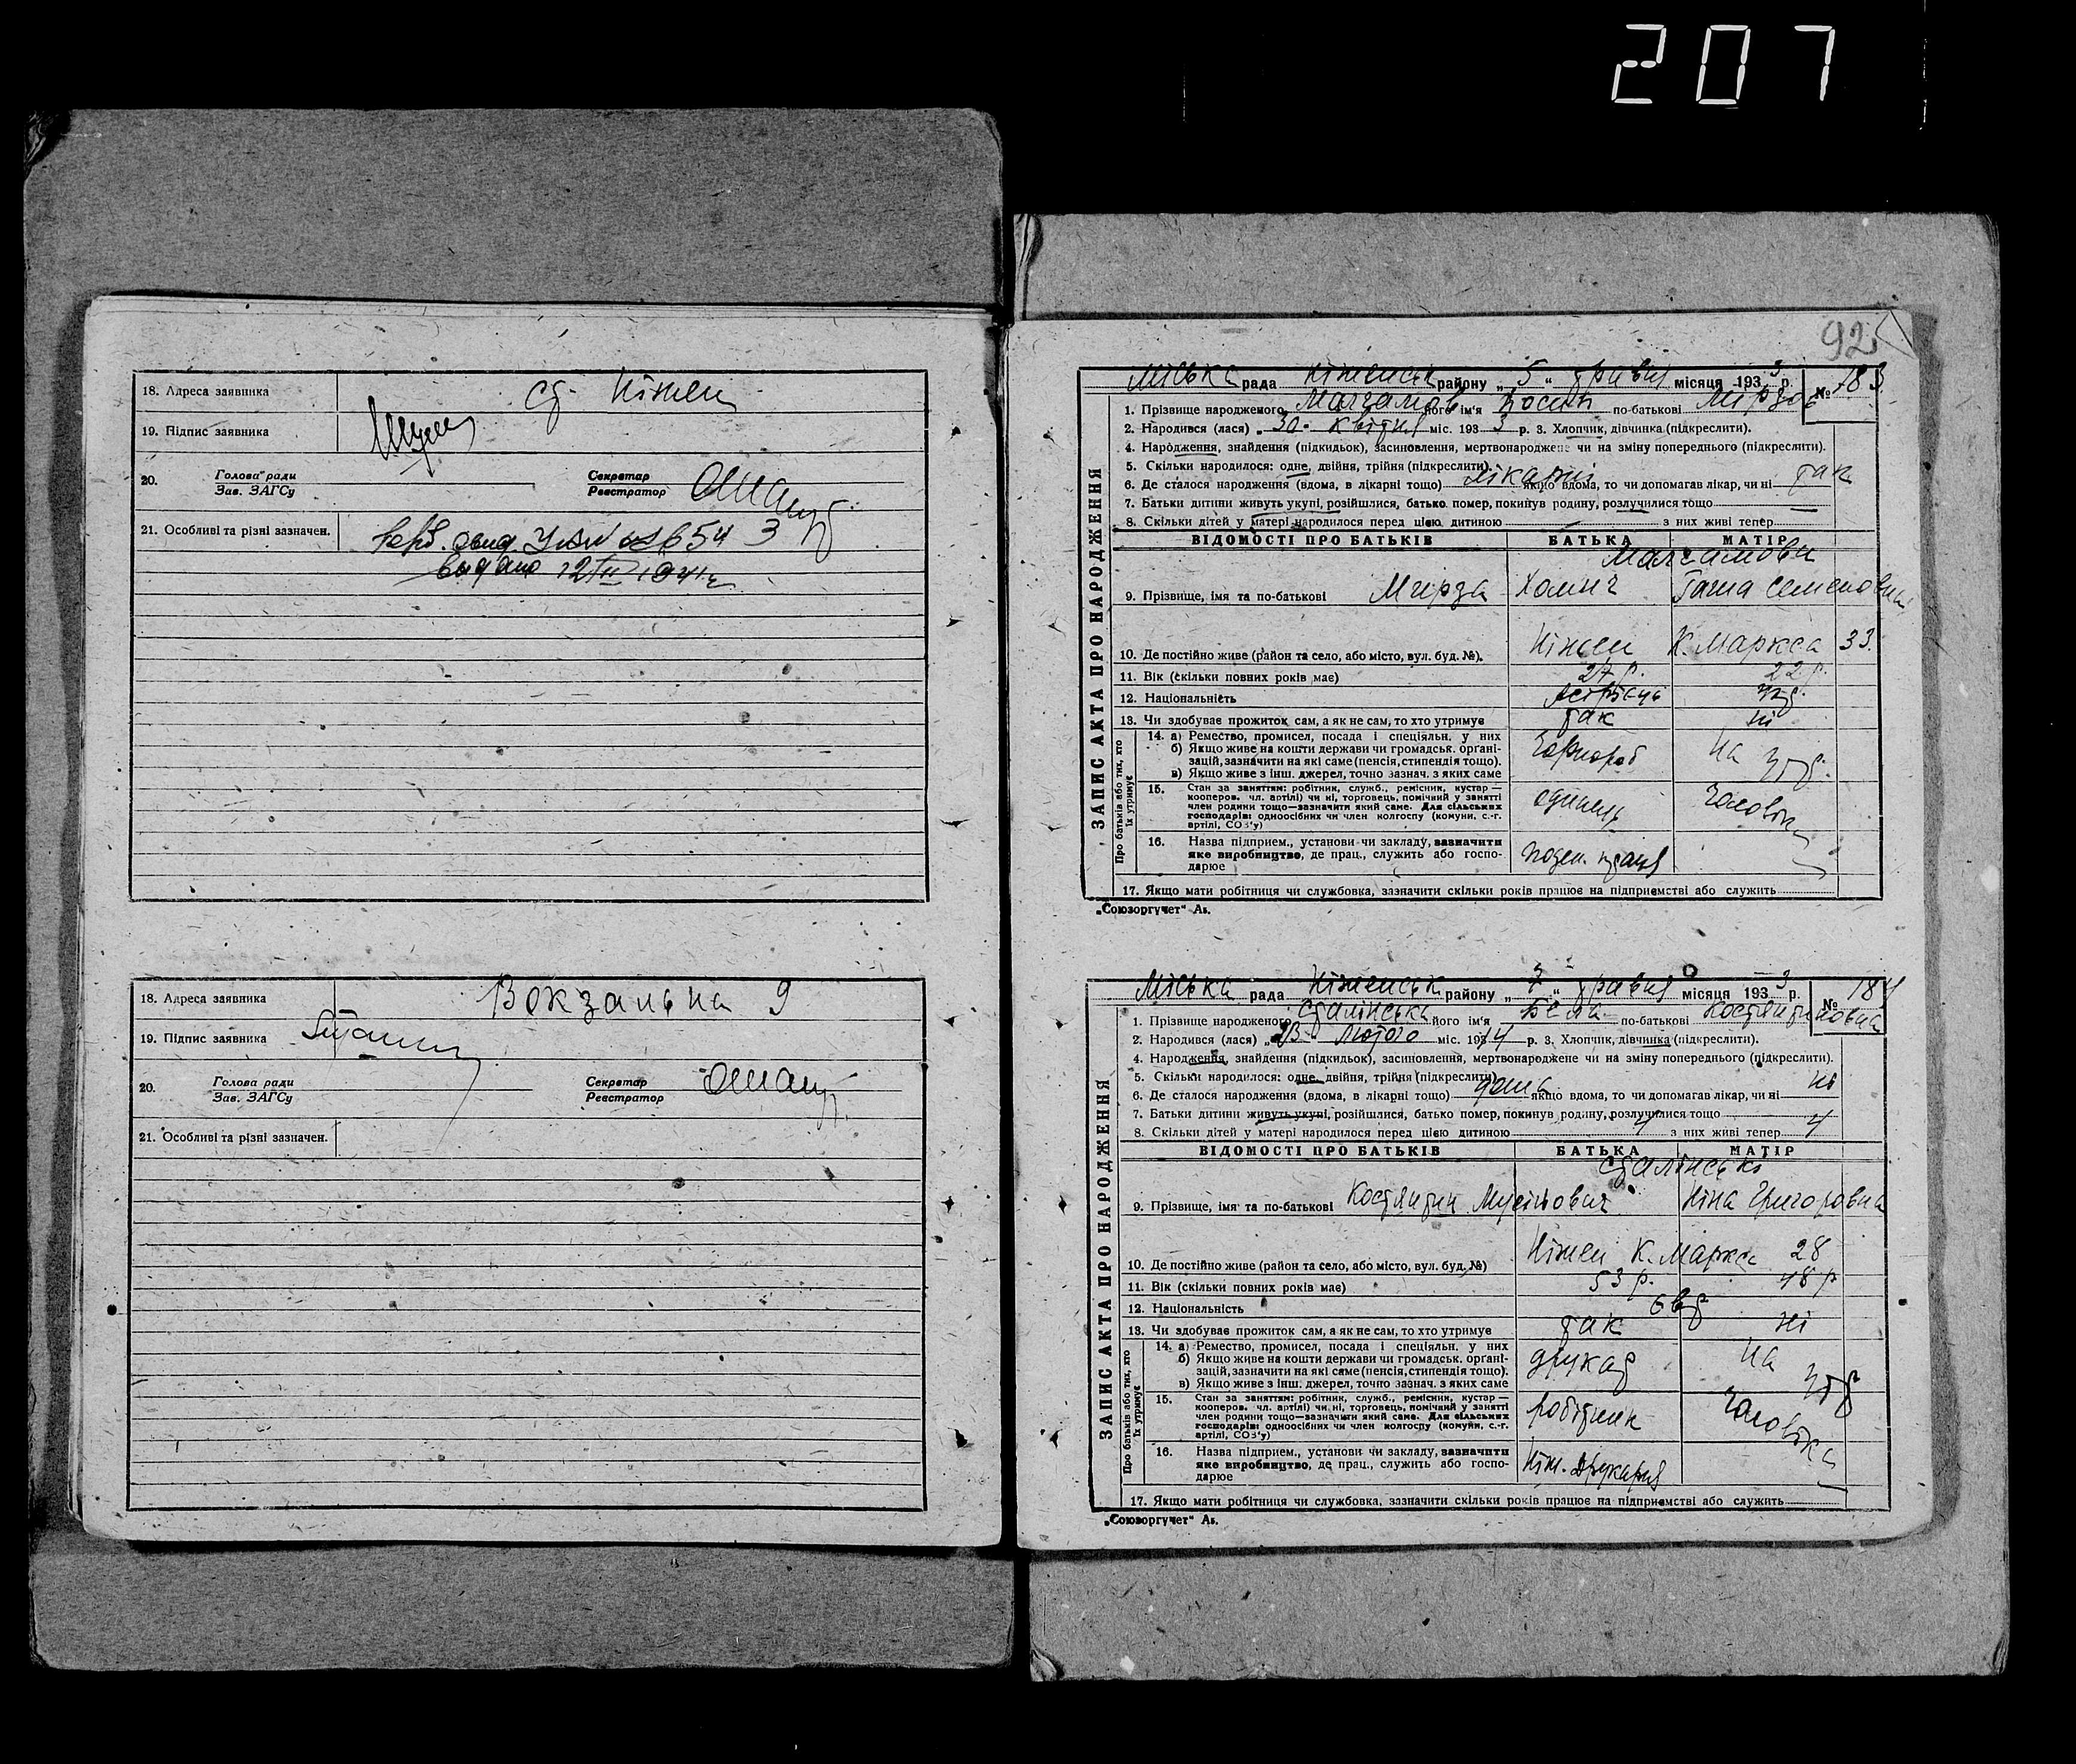 207
18. Адреса заявника ст. Ніжен
19. Підпис заявника
20. Голова ради Секретар
Зав. ЗАГСу Реєстратор
21. Особливі та різні зазначен.
видано 12/II 1941 г.
18. Адреса заявника Вокзальна 9
19. Підпис заявника
20. Голова ради Секретар
Зав. ЗАГСу Реєстратор
21. Особливі та різні зазначен.
92
Міська рада Ніженськ району „ 5 “ травня місяця 1933 р. № 183
1. Прізвище народженого його ім'я по-батькові
2. Народився (лася) „ 30 квітня міс. 1933 р. 3. Хлопчик, дівчинка (підкреслити).
4. Народження, знайдення (підкидьок), засиновлення, мертвонароджене чи на зміну попереднього (підкреслити).
5. Скільки народилося: одне, двійня, трійня (підкреслити).
6. Де сталося народження (вдома, в лікарні тощо) лікарні якщо вдома, то чи допомагав лікар, чи ні так
7. Батьки дитини живуть укупі, розійшлися, батько помер, покинув родину, розлучилися тощо
8. Скільки дітей у матері народилося перед цією дитиною з них живі тепер
ЗАПИС АКТА ПРО НАРОДЖЕННЯ
ВІДОМОСТІ ПРО БАТЬКІВ БАТЬКА МАТІР
9. Прізвище, імя та по-батькові Мирза Семеновна
10. Де постійно живе (район та село, або місто, вул. буд. №). Ніжен К. Маркса 33.
11. Вік (скільки повних років має) 27 р. 22 р.
12. Національність
13. Чи здобуває прожиток сам, а як не сам, то хто утримує так ні
Про батьків або тих, хто їх утримує
14. а) Ремество, промисел, посада і спеціяльн. у них Чорнороб на утр.
б) Якщо живе на кошти держави чи громадськ. органі-
зацій, зазначити на які саме (пенсія, стипендія тощо).
в) Якщо живе з інш. джерел, точно зазнач. з яких саме
15. Стан за заняттям: робітник, служб., ремісник, кустар — чоловіка
кооперов. чл. артілі) чи ні, торговець, помічний у занятті
член родини тощо—зазначити який саме. Для сільських
господарів: одноосібних чи член колгоспу (комуни, с.-г.
артілі, СОЗ'у)
16. Назва підприєм., установи чи закладу, зазначити
яке виробництво, де прац., служить або госпо- поден. праця
дарює
17. Якщо мати робітниця чи службовка, зазначити скільки років працює на підприємстві або служить
„Союзоргучет“ Ав.
Міська рада Ніженськ району „ 7 “ травня місяця 1933 р. № 184
1. Прізвище народженого Сталінська його ім'я Бела по-батькові Костянтиновна
2. Народився (лася) „ 23 лютого міс. 1914 р. 3. Хлопчик, дівчинка (підкреслити).
4. Народження, знайдення (підкидьок), засиновлення, мертвонароджене чи на зміну попереднього (підкреслити).
5. Скільки народилося: одне, двійня, трійня (підкреслити).
6. Де сталося народження (вдома, в лікарні тощо) дома якщо вдома, то чи допомагав лікар, чи ні ні
7. Батьки дитини живуть укупі, розійшлися, батько помер, покинув родину, розлучилися тощо
8. Скільки дітей у матері народилося перед цією дитиною 4 з них живі тепер 4
ЗАПИС АКТА ПРО НАРОДЖЕННЯ
ВІДОМОСТІ ПРО БАТЬКІВ БАТЬКА МАТІР
Сталінські
9. Прізвище, імя та по-батькові Костянтин Мусійович Ніна Григоровна
10. Де постійно живе (район та село, або місто, вул. буд. №) Ніжен К. Маркса 28
11. Вік (скільки повних років має) 53 р. 48 р
12. Національність євр
13. Чи здобуває прожиток сам, а як не сам, то хто утримує так ні
Про батьків або тих, хто їх утримує
14. а) Ремество, промисел, посада і спеціяльн. у них друкар на утр
б) Якщо живе на кошти держави чи громадськ. органі-
зацій, зазначити на які саме (пенсія, стипендія тощо).
в) Якщо живе з інш. джерел, точно зазнач. з яких саме
15. Стан за заняттям: робітник, служб., ремісник, кустар — робітник чоловіка
кооперов. чл. артілі) чи ні, торговець, помічний у занятті
член родини тощо—зазначити який саме. Для сільських
господарів: одноосібних чи член колгоспу (комуни, с.-г.
артілі, СОЗ'у)
16. Назва підприєм., установи чи закладу, зазначити
яке виробництво, де прац., служить або госпо- Ніж. Друкарня
дарює
17. Якщо мати робітниця чи службовка, зазначити скільки років працює на підприємстві або служить
„Союзоргучет“ Ав.